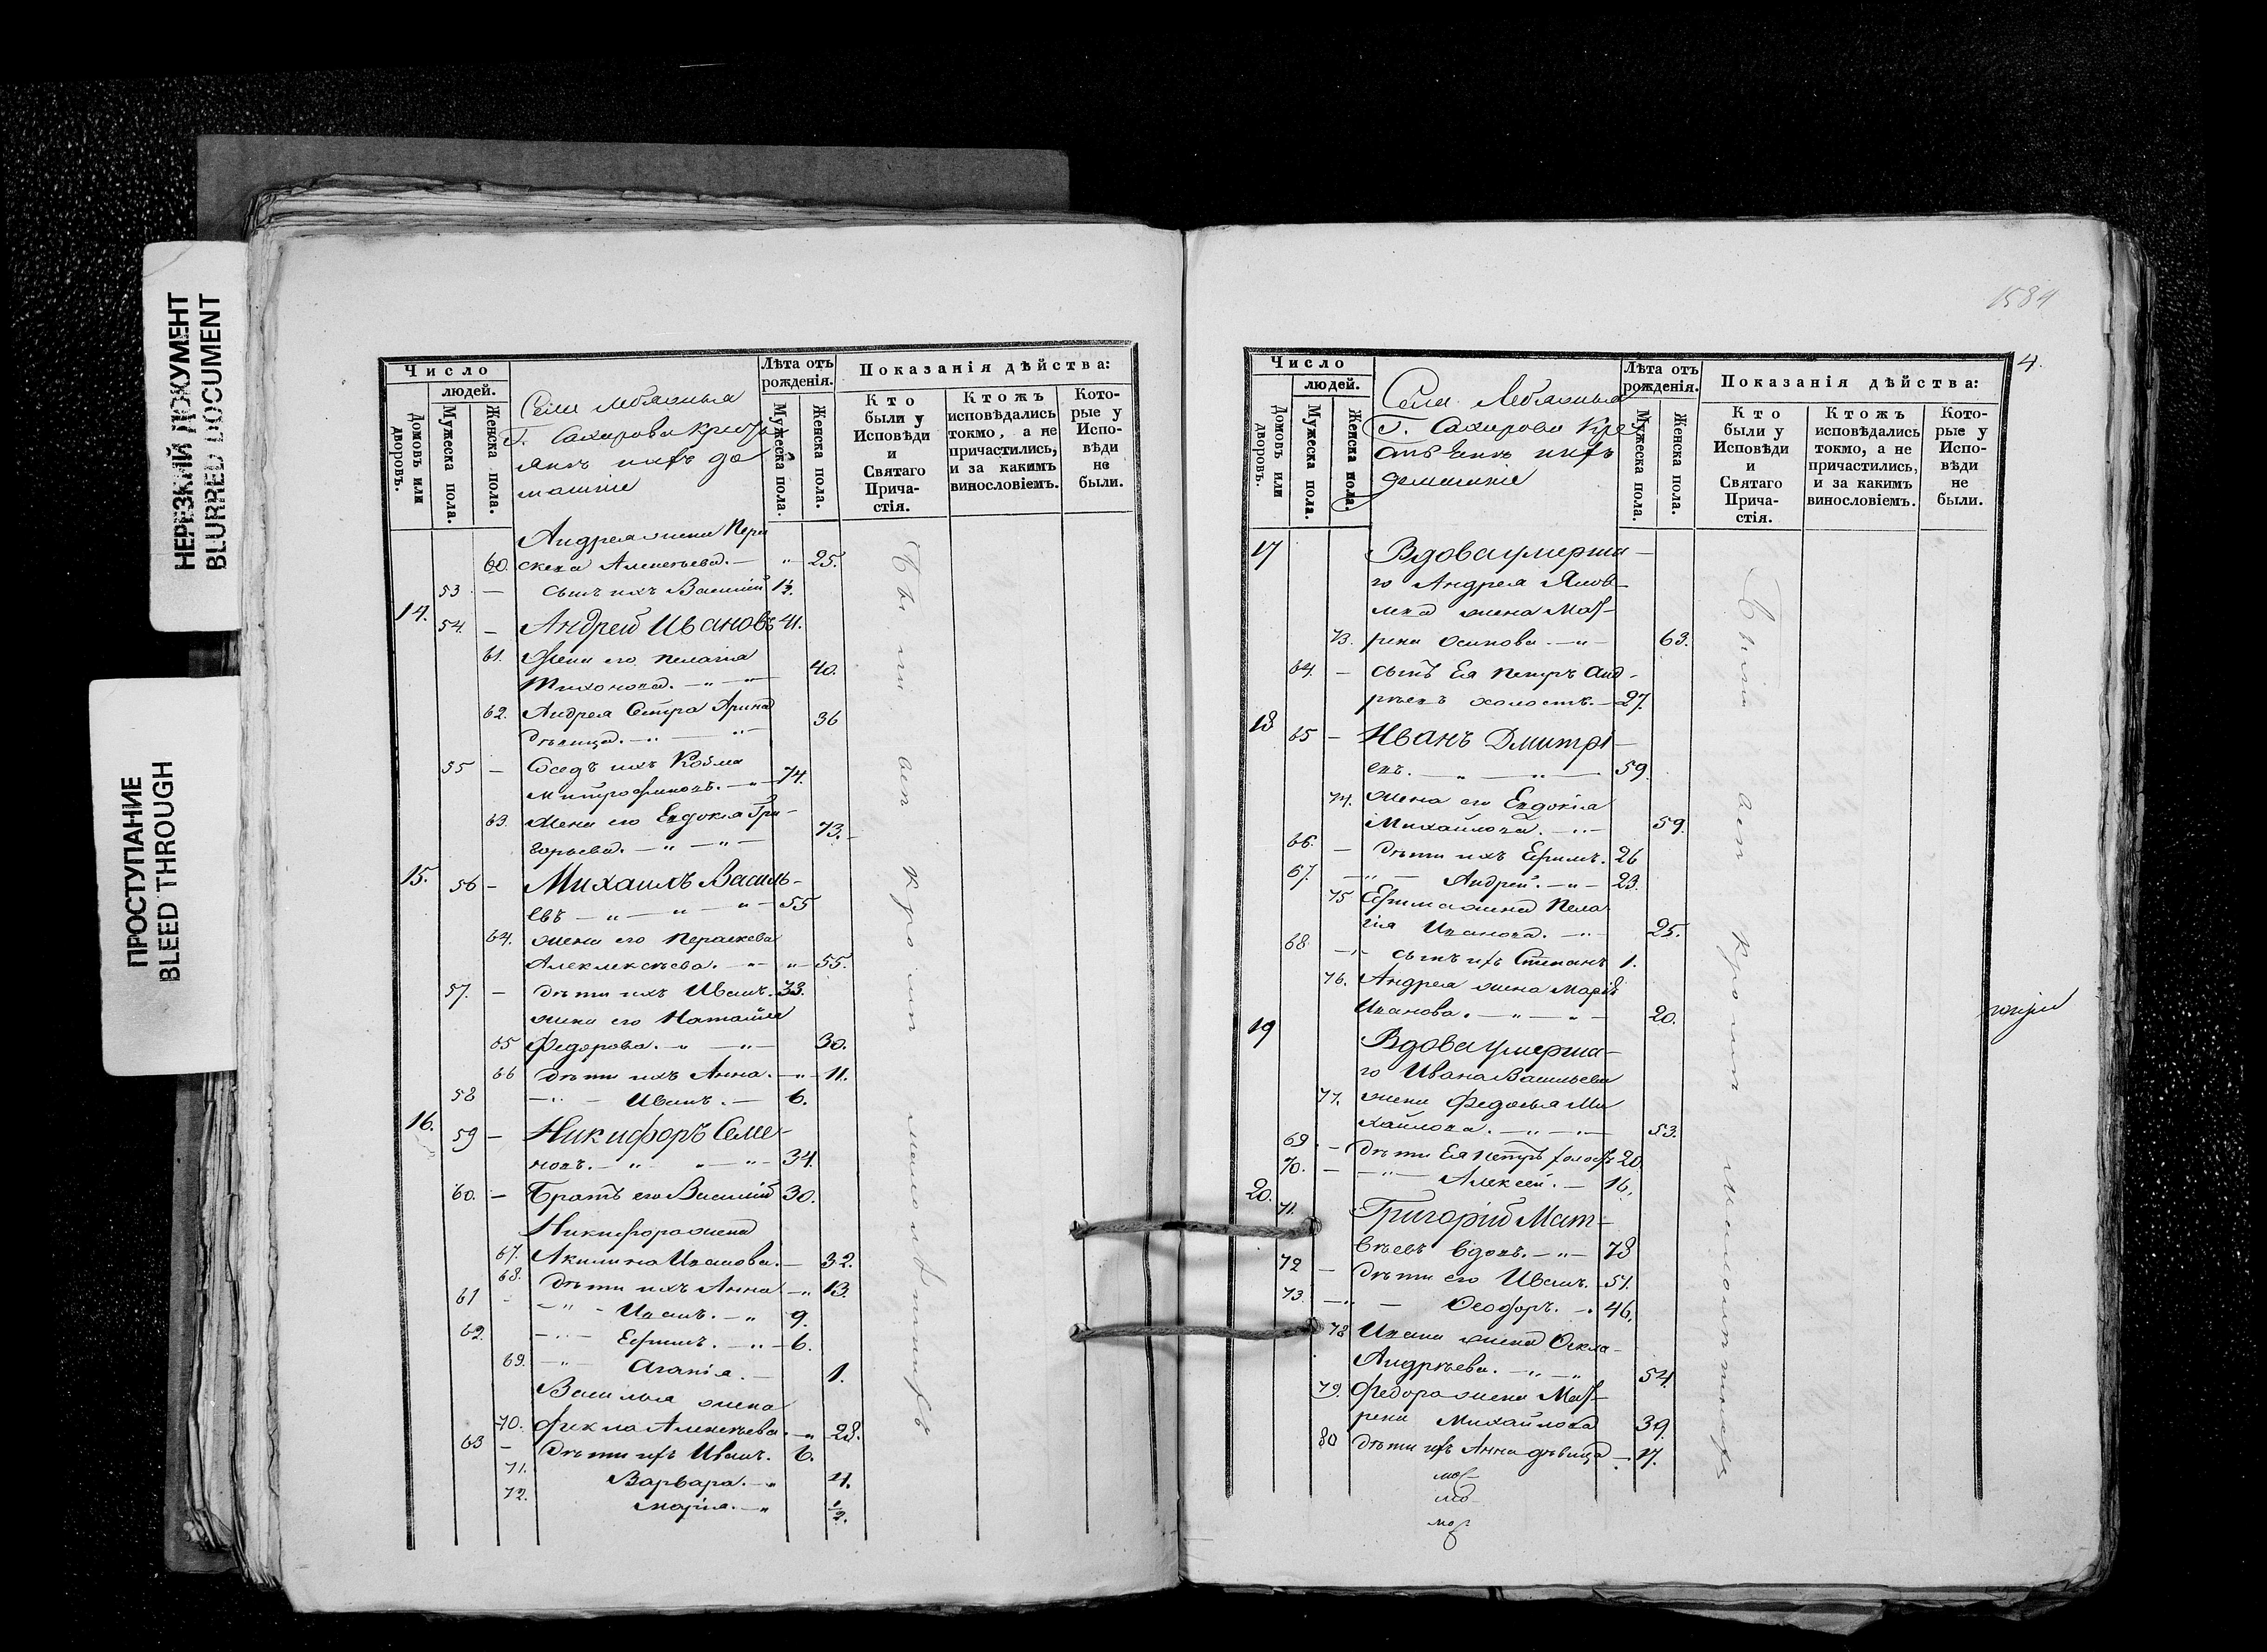 НЕРЕЗКИЙ ДОКУМЕНТ
BLURRED DOCUMENT
ПРОСТУПАНИЕ
BLEED THROUGH
Число
людей.
Домовъ или дворовъ.
Мужеска пола.
Женска пола.
Лѣта отъ рожденія.
Мужеска пола.
Женска пола.
Показанія дѣйства:
Кто были у Исповѣди и Святаго Прича-стія.
Ктожъ исповѣдались токмо, а не причастились, и за какимъ винословіемъ.
Кото-рые у Испо-вѣди не были.
Села
Г. Сахарова Кресть
янъ ихъ до
машніе
Андрея жена Пара
60. скева Алексѣева. — " — 25.
53 — сынъ ихъ Василій 1½.
14. 54. — Андрей Ивановъ 41.
61. Жена его Пелагія
Тихонова. — " — " — 40.
62. Андрея Сестра Арина 36
дѣвица. — " — " —
55 — Сосѣдъ ихъ Козма
Митрофановъ. — " — 74.
63. Жена его Евдокія Гри-
горьева. — " — " — 73. —
15. 56 — Михаилъ Василь-
евъ — " — " — " — 55
64. жена его Параскева
Алеклексѣева. — " — " — 55.
57. — дѣти ихъ Иванъ. 33.
жена его Наталія
65 Федорова. — " — " — 30.
66 дѣти ихъ Анна. — " — 11.
58 — " — Иванъ. — 6.
16. 59 — Никифоръ Семе-
новъ. — " — " — " — 34.
60. — Братъ его Василій 30.
Никифора жена
67. Акилина Иванова. — 32.
68. дѣти ихъ Анна — " — 13.
61 — " — Иванъ. — " 9.
62. — " — Ефимъ. — " — 6.
69. — " — Агапія. — 1.
Василья жена
70. Фекла Алексѣева. — " — 28.
63 — Дѣти ихъ Иванъ. 6.
71. Варвара. — " 4.
72. Марія. — " ½.
1584
4.
Число
людей.
Домовъ или дворовъ.
Мужеска пола.
Женска пола.
Лѣта отъ рожденія.
Мужеска пола.
Женска пола.
Показанія дѣйства:
Кто были у Исповѣди и Святаго Прича-стія.
Ктожъ исповѣдались токмо, а не причастились, и за какимъ винословіемъ.
Кото-рые у Испо-вѣди не были.
Села
Г. Сахарова Кре
стьянъ ихъ
домашніе
17 Вдова умерша —
го Андрея Яков
лева жена Мат-
73. рена Осипова — " — 63.
64. — сынъ Ея Петръ Анд-
рѣевъ холостъ. — 27.
18 65 — Иванъ Дмитрі —
евъ. — " — " — 59.
74. жена его Евдокія
Михайлова. — " — 59.
66. — дѣти ихъ Ефимъ. 26
67. — " — Андрей. — " — 23.
75 Ефима жена Пела-
гія Иванова. — " — 25.
68 — " сынъ ихъ Степанъ 1.
76. Андрея жена Марія
Иванова. — " — " — 20.
19 Вдова умерша —
го Ивана Васильева
77. жена Федосья Ми
хайлова. — " — " — 53.
69 — дѣти Ея Петръ холостъ 20.
70. — " — Алексей. — 16.
20. 71. Григорій Мат —
вѣевъ вдовъ. — " — 78
72 — дѣти его Иванъ. — 57.
73. — " — Өеодоръ. — 46.
78 Ивана жена Өекла —
Андрѣева. — " — " 54.
79. Федора жена Мат-
рена Михайлова 39.
80 дѣти ихъ Анна дѣвица — 17.